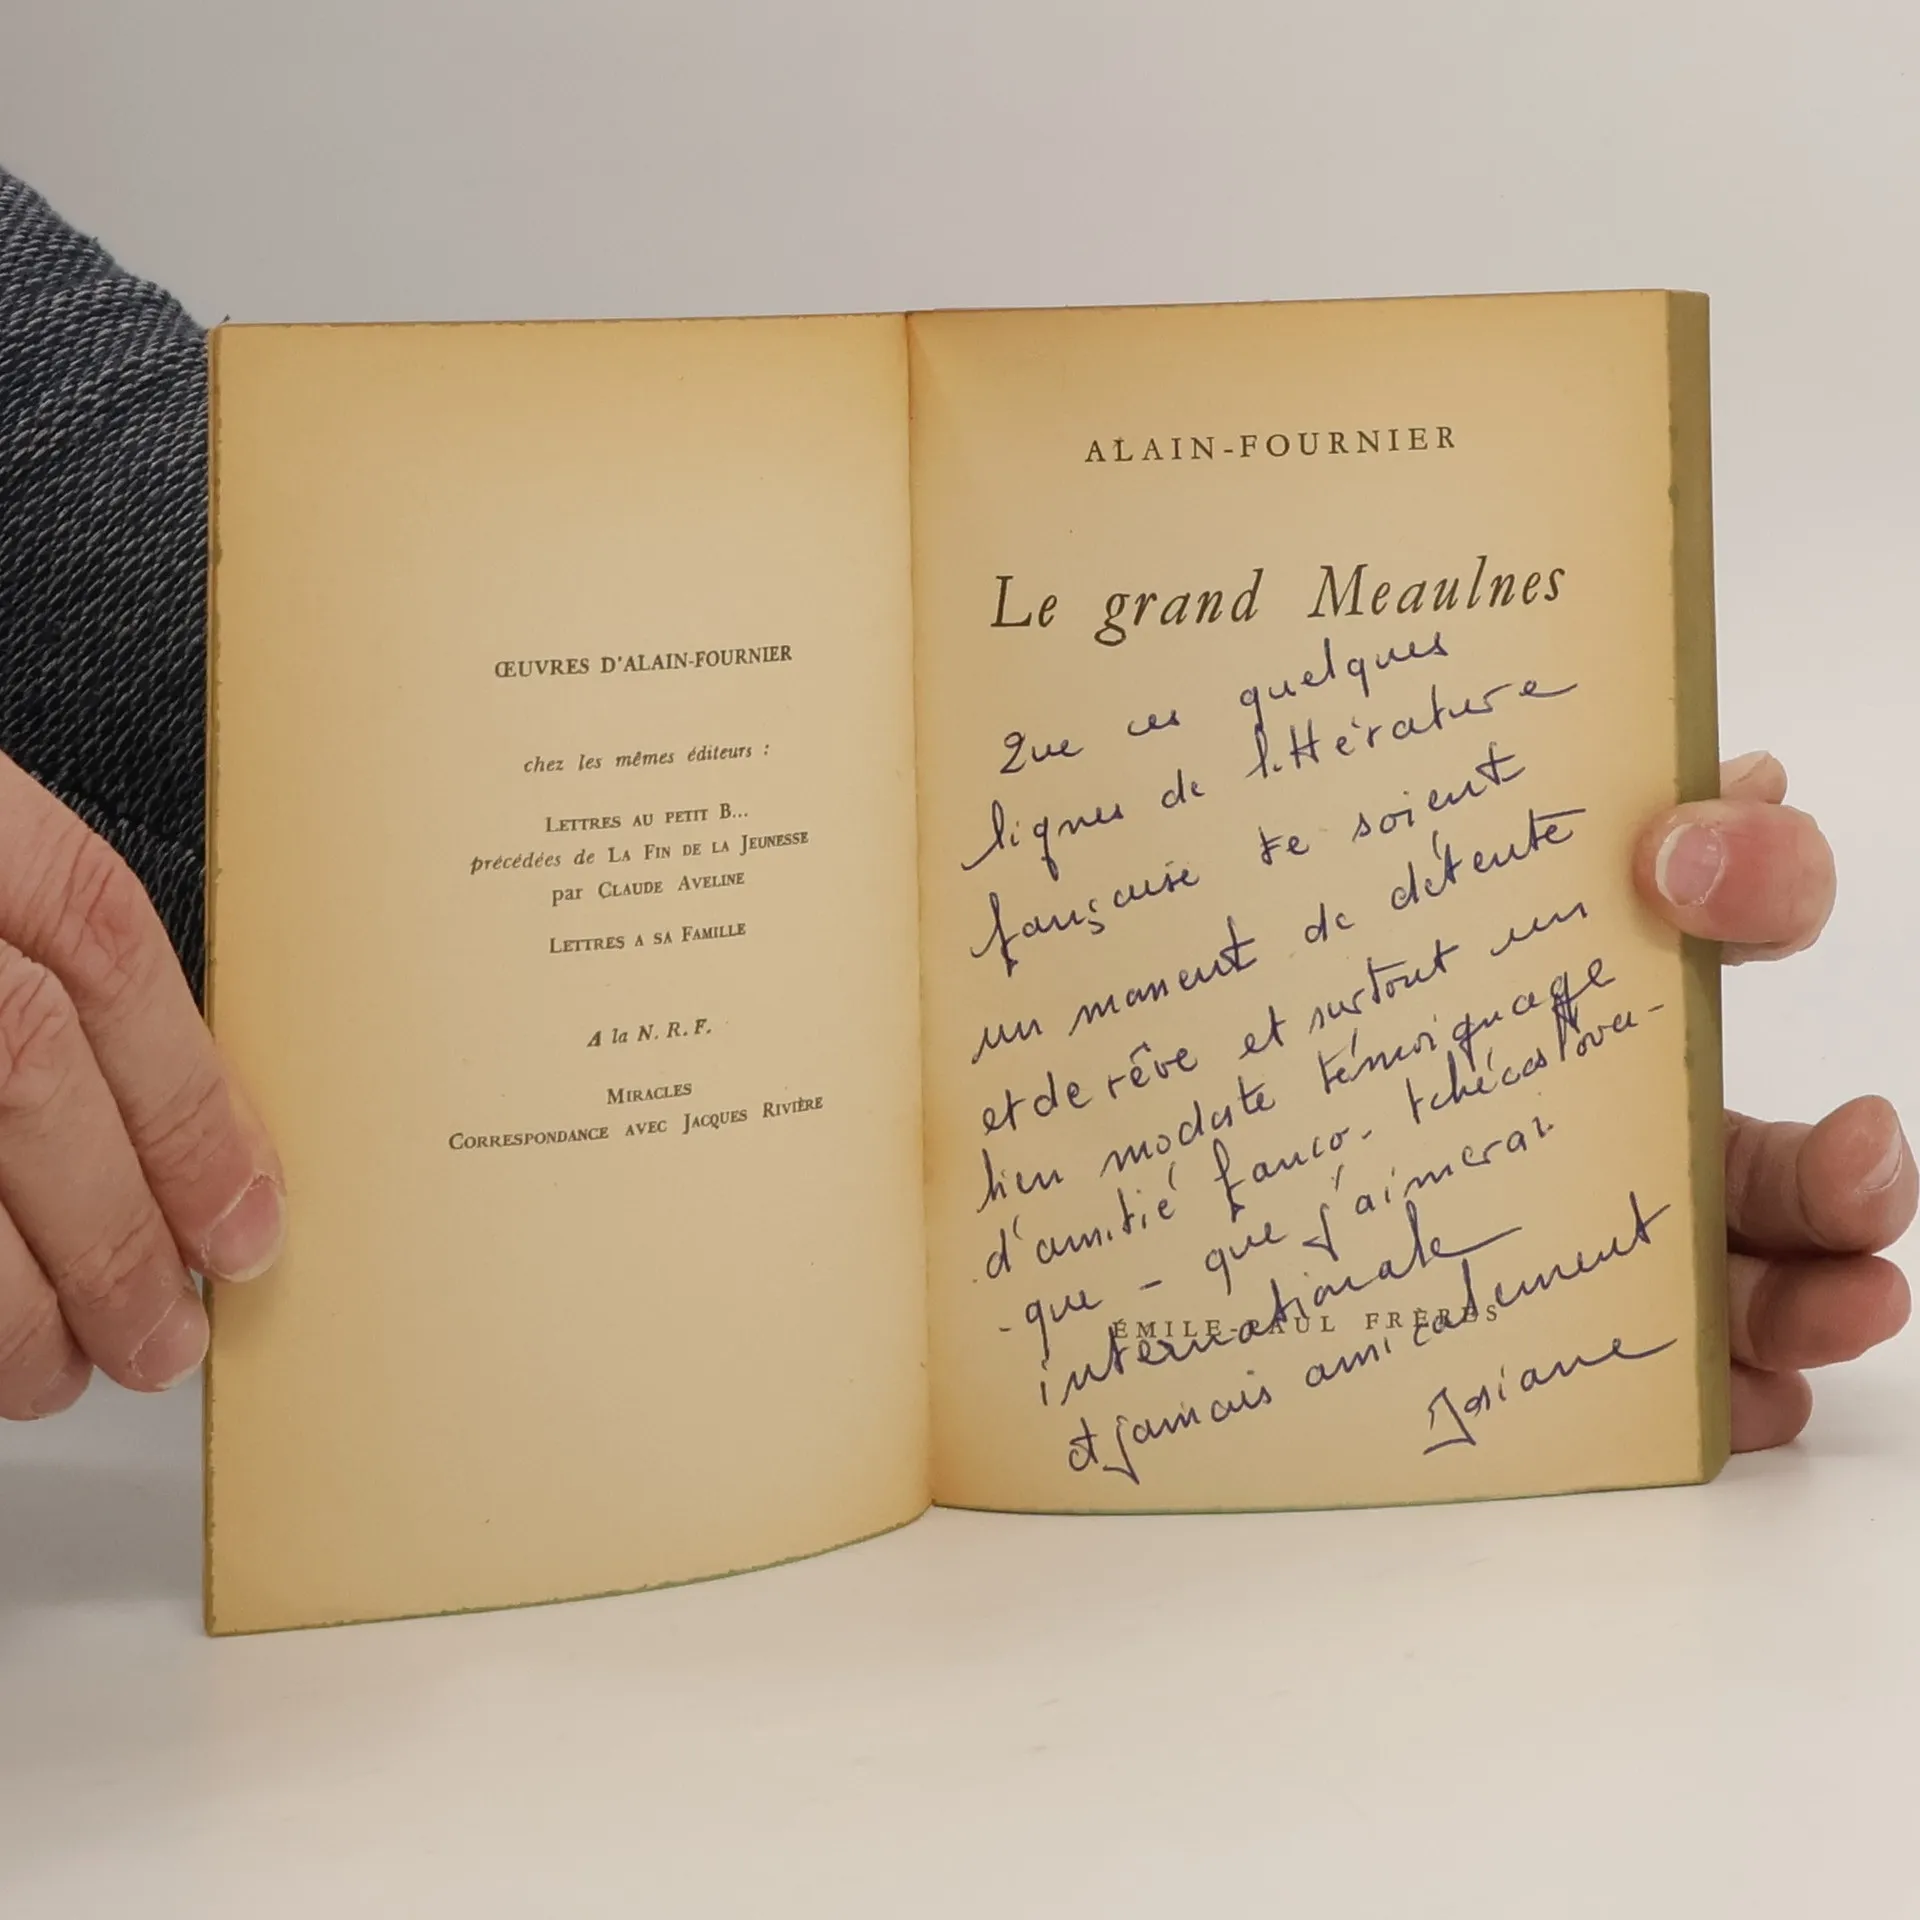 ŒUVRES D'ALAIN-FOURNIER
chez les mêmes éditeurs :
LETTRES AU PETIT B...
précédées de LA FIN DE LA JEUNESSE
par CLAUDE AVELINE
LETTRES A SA FAMILLE
A la N. R. F.
MIRACLES
CORRESPONDANCE AVEC JACQUES RIVIÈRE
ALAIN-FOURNIER
Le grand Meaulnes
Que ces quelques
lignes de littérature
française te soient
un moment de détente
et de rêve et surtout un
bien modeste témoignage
d'amitié franco-tchécoslova-
-que - que j'aimerai
internationale
et jamais amicalement
Josiane
ÉMILE-PAUL FRÈRES